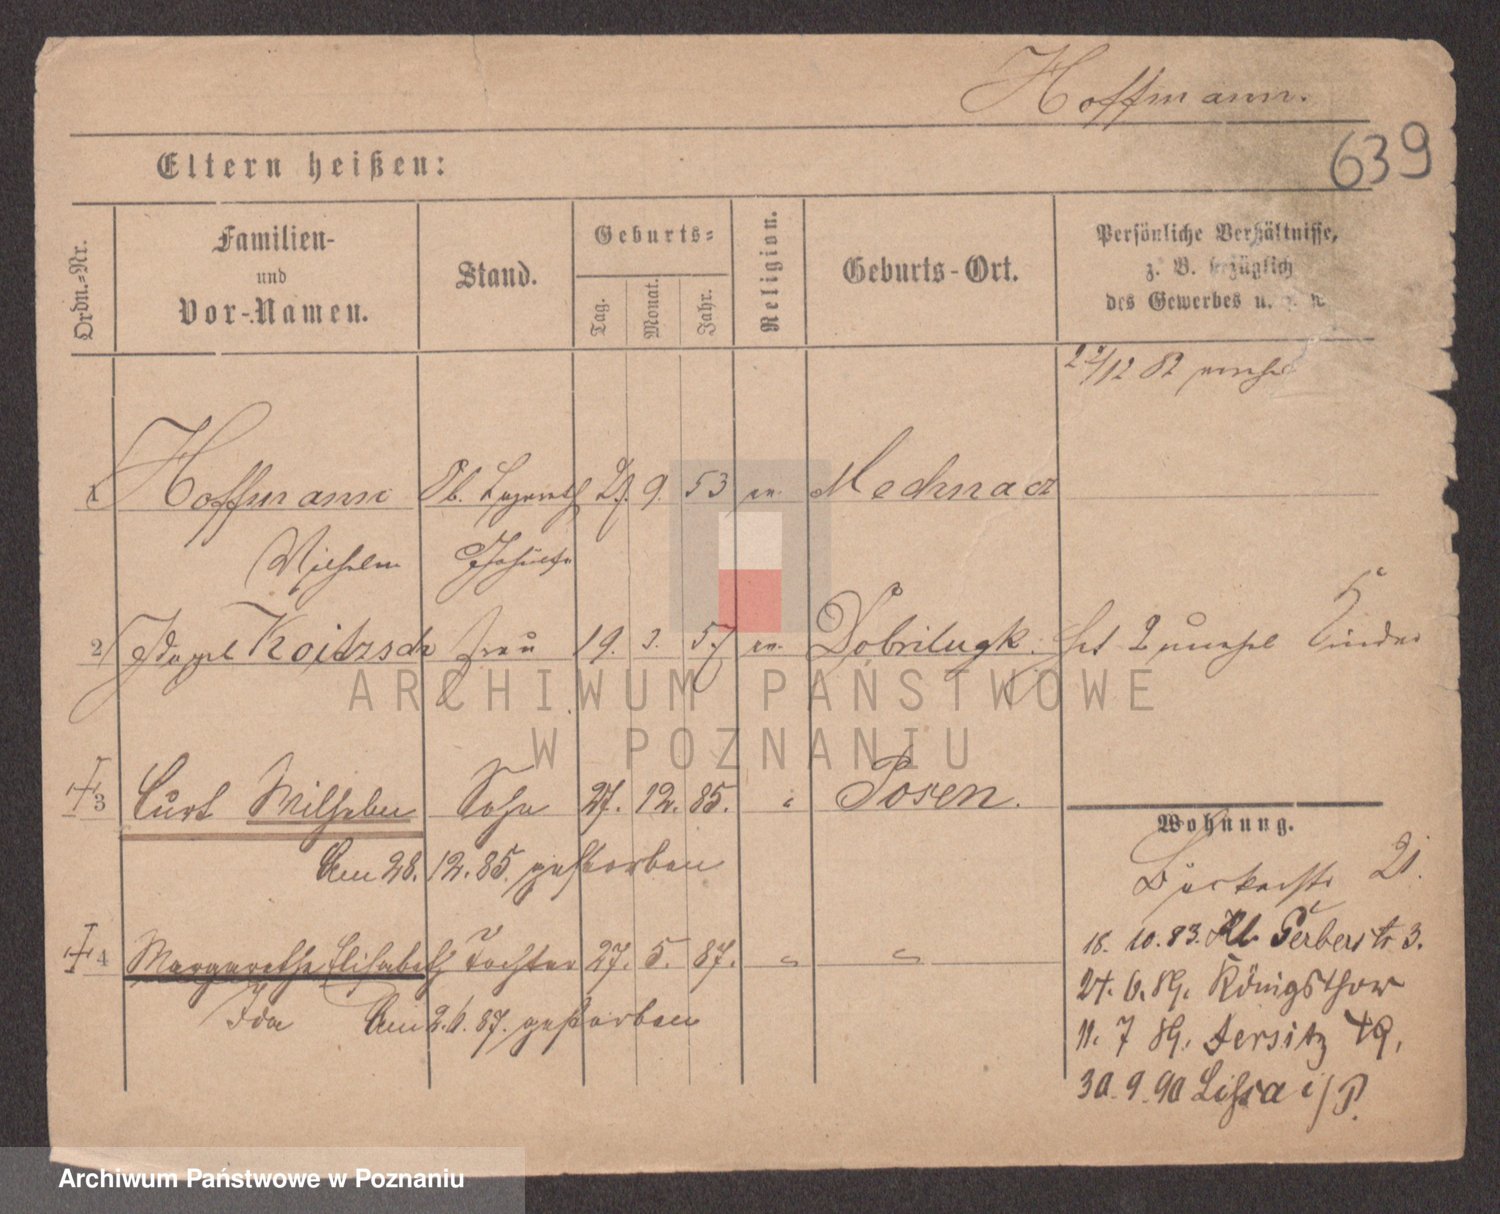 Hoffmann.
639
Eltern heißen:
Ordn.-Nr.
Familien- und Vor-Namen.
Stand.
Geburts-
Tag.
Monat.
Jahr.
Religion.
Geburts-Ort.
Persönliche Verhältnisse, z. B. bezüglich des Gewerbes u.
12 82
1 Hoffmann 9. 53 ev.
Wilhelm
2 Koitzsch Frau 19. 3. 57 ev. Dobrilugk. hat 2 unehel Kinder
3 Curt Wilhelm Sohn 27. 12. 85. " Posen.
Am 28. 12. 85. gestorben
4 Margarethe Elisabeth Tochter 27. 5. 87. " "
Ida Am 2.6. 87. gestorben
Wohnung.
Bäckerstr 21.
18. 10. 83. Kl. Gerberstr 3.
27. 6. 89. Königsthor
11. 7 89. Jersitz
30. 9. 90 Lissa i/P.
ARCHIWUM PAŃSTWOWE
W POZNANIU
Archiwum Państwowe w Poznaniu